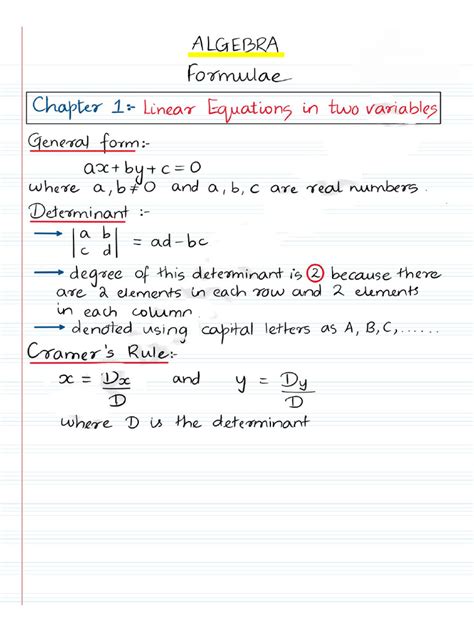 ALGEBRA
Formulae
Chapter 1:- Linear Equations in two variables
General form:-
ax+by+c=0
where a,b≠0 and a,b,c are real numbers.
Determinant :-
→ |a b|
|c d| = ad-bc
→ degree of this determinant is 2 because there
are 2 elements in each row and 2 elements
in each column.
→ denoted using capital letters as A, B, C,......
Cramer's Rule:-
x = Dx/D and y = Dy/D
where D is the determinant